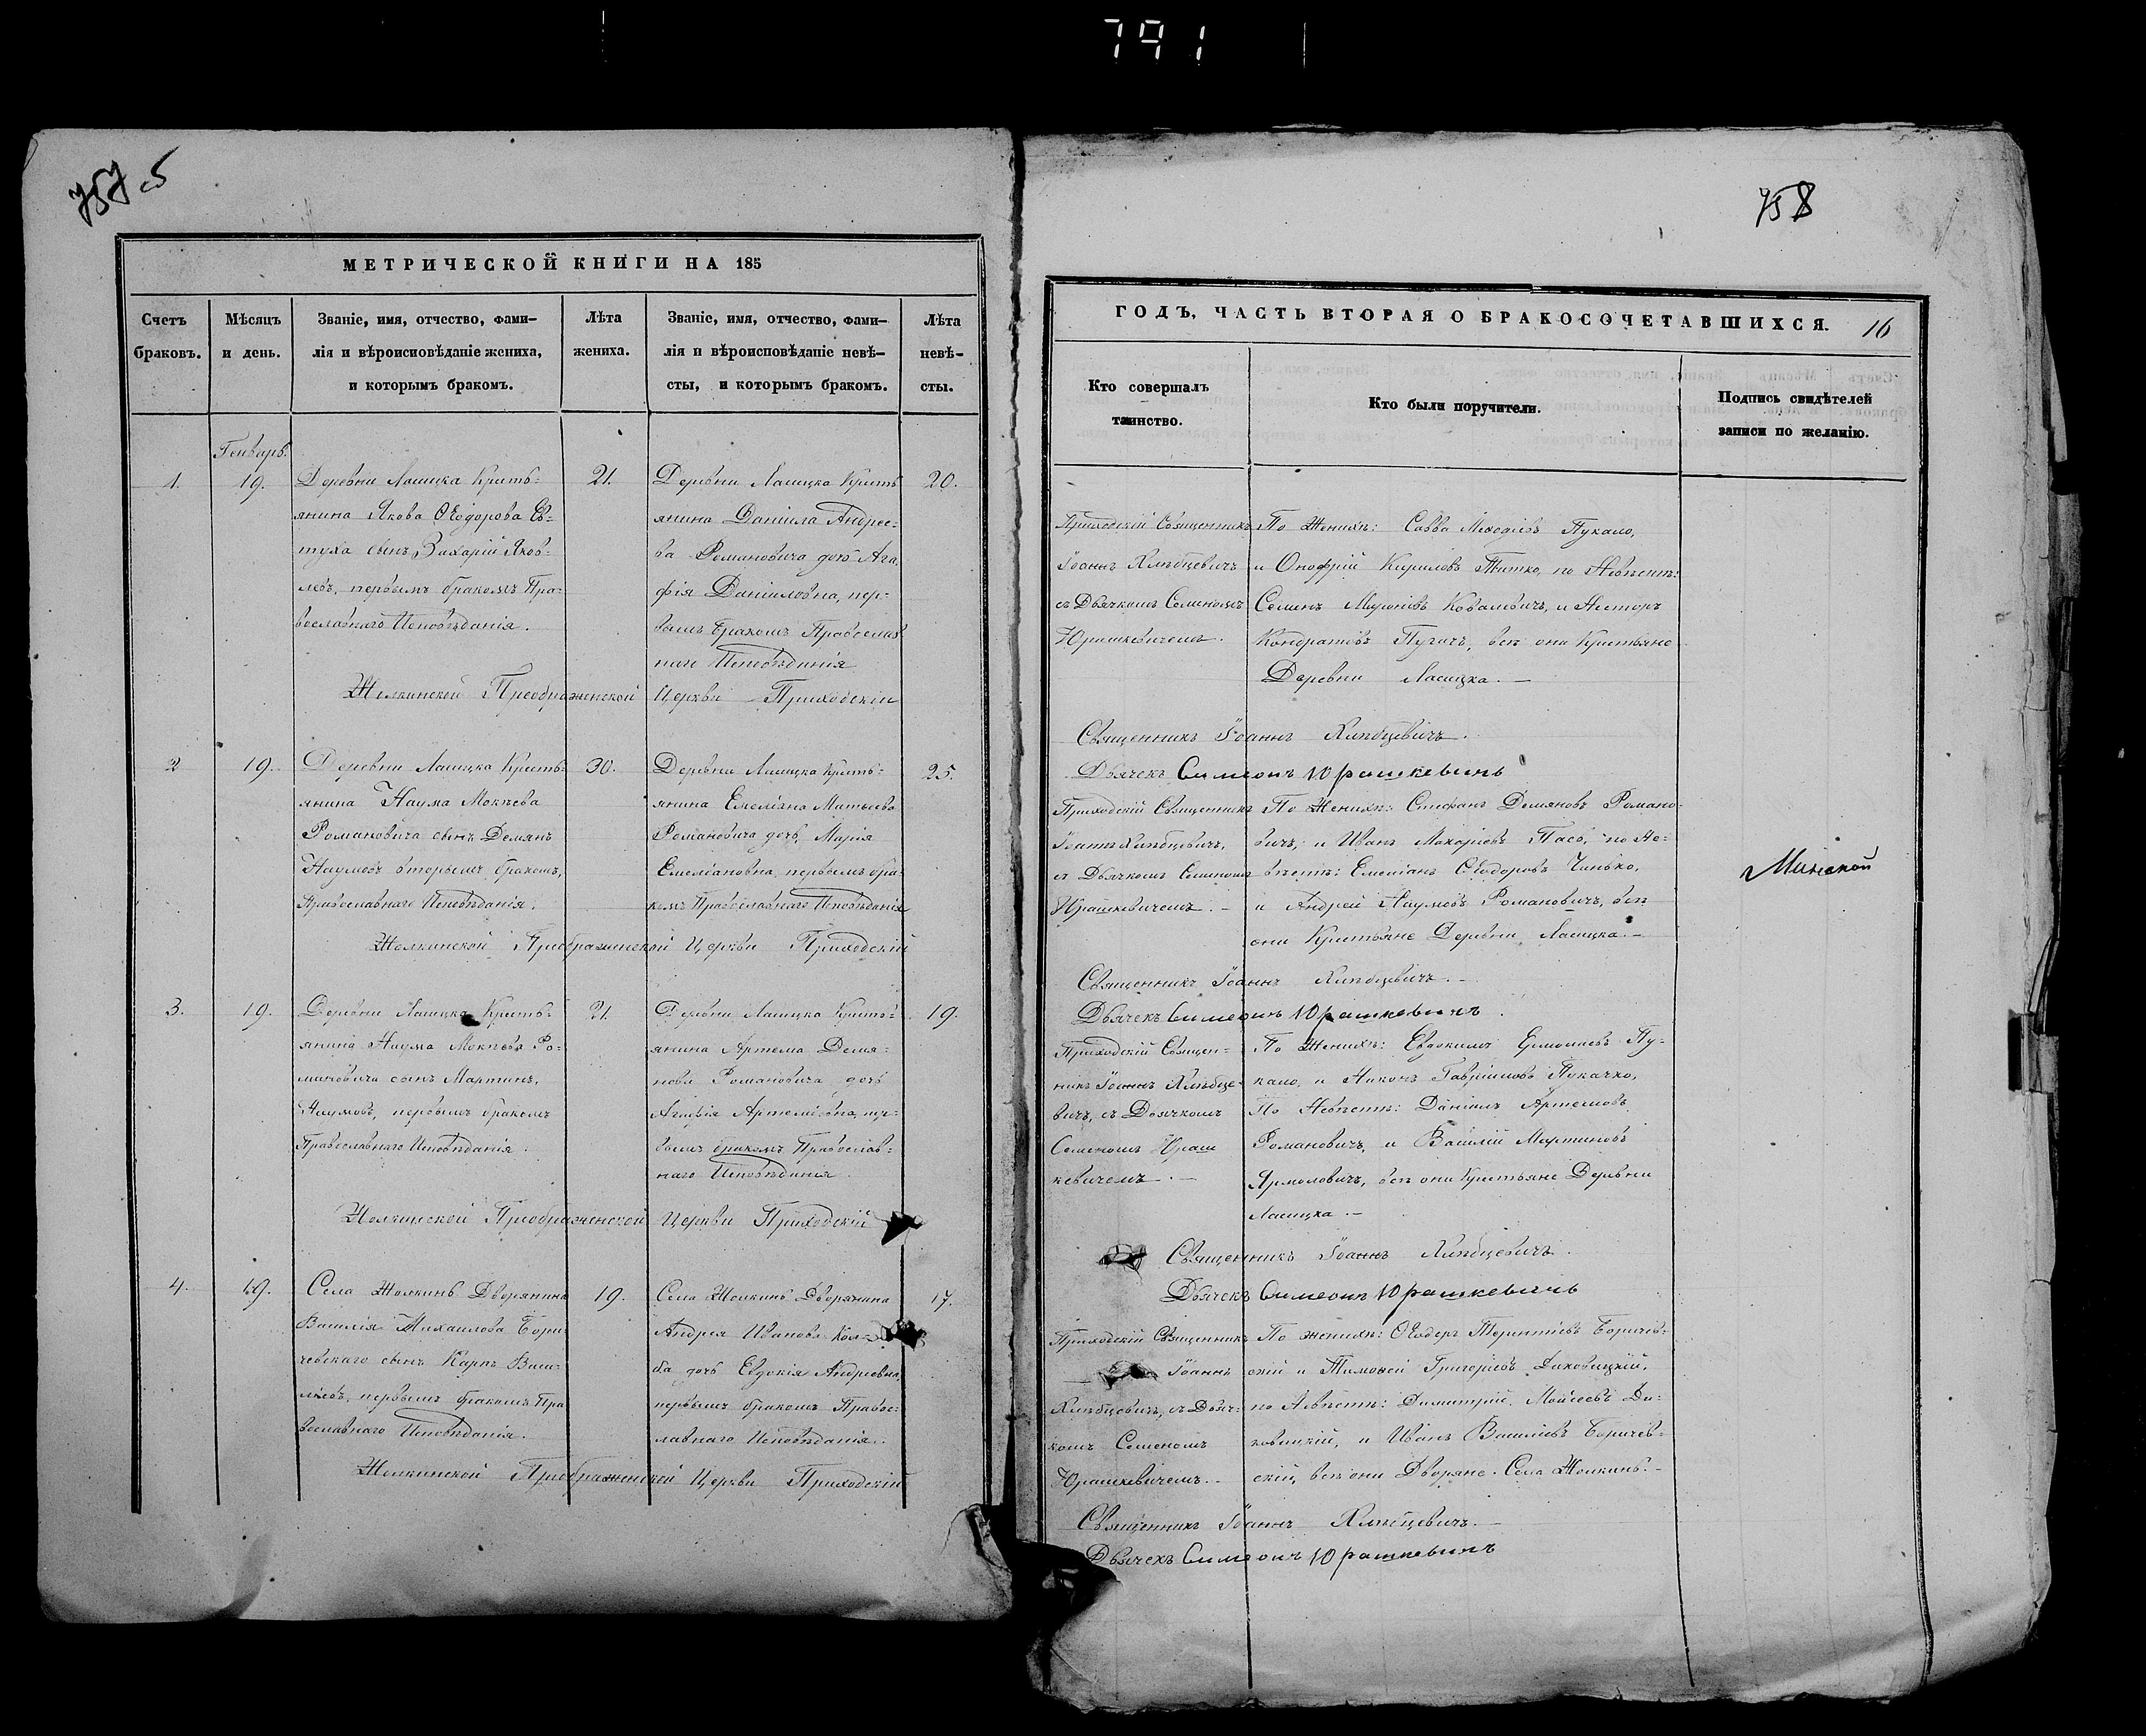 791
757 об
758
МЕТРИЧЕСКОЙ КНИГИ НА 185
Счетъ браковъ.
Мѣсяцъ и день.
Званіе, имя, отчество, фами-
лія и вѣроисповѣданіе жениха,
и которымъ бракомъ.
Лѣта жениха.
Званіе, имя, отчество, фами-
лія и вѣроисповѣданіе невѣ-
сты, и которымъ бракомъ.
Лѣта невѣ-
сты.
Генварь.
1.
19.
Деревни Ласицка Кресть-
янина Якова Ѳеодорова Ев-
туха сынъ Захарій Яков-
левъ, первымъ бракомъ Пра-
вославнаго Исповѣданія.
21.
Деревни Ласицка Кресть
янина Даніила Андрее-
ва Романовича дочь Ага
фія Даніиловна, пер-
вымъ бракомъ Православ
наго Исповѣданія
20.
Жолкинской Преображенской Церкви Приходскій
2
19.
Деревни Ласицка Кресть-
янина Наума Мокѣева
Романовича сынъ Демянъ
Наумовъ вторымъ бракомъ,
Православнаго Исповѣданія.
30.
Деревни Ласицка Кресть-
янина Емеліана Матвеева
Романовича дочь, Марія
Емеліановна первымъ бра-
комъ Православнаго Исповѣданія
25.
Жолкинской Преображенской Церкви Приходскій
3.
19.
Деревни Ласицка Кресть-
янина Наума Мокѣева Ро-
мановича сынъ Мартинъ,
Наумовъ, первымъ бракомъ
Православнаго Исповѣданія.
21.
Деревни Ласицка Кресть-
янина Артема Демя-
нова Романовича дочь
Агафія Артеміовна, пер-
вымъ бракомъ Православ-
наго Исповѣданія.
19.
Жолкинской Преображенской Церкви Приходскій
4.
19.
Села Жолкинь Дворянина
Василія Михаилова Бори-
чевскаго сынъ Карпъ Васи-
лѣевъ, первымъ бракомъ Пра
вославнаго Исповѣданія.
19.
Села Жолкинь Дворянина
Андрея Иванова
ба дочь Евдокія Андреевна,
первымъ бракомъ Правос-
лавнаго Исповѣданія.
17.
Жолкинской Преображенской Церкви Приходскій
ГОДЪ, ЧАСТЬ ВТОРАЯ О БРАКОСОЧЕТАВШИХСЯ.
16
Кто совершалъ таинство.
Кто были поручители.
Подпись свидѣтелей
записи по желанію.
Приходскій Священникъ
Іоаннъ Хлѣбцевичъ
съ Дьячкомъ Семеномъ
Юрашкевичемъ.
По Женихѣ: Савва Меѳодіевъ Пукало,
и Онофрій Кириловъ Титко, по Невѣстѣ:
Семенъ Мироновъ Ковалевичъ, и Несторъ
Кондратовъ Пугачъ, всѣ они Крестьяне
Деревни Ласицка. —
Священникъ Іоаннъ Хлѣбцевичъ.
Дьячекъ Симеонъ Юрашкевичь
Приходскій Священникъ
Іоаннъ Хлѣбцевичъ,
съ Дьячкомъ Семеномъ
Юрашкевичемъ. —
По Женихѣ: Стефанъ Демяновъ Романо-
вичъ, и Иванъ Макаріевъ Пасо, по Не-
вѣстѣ: Емеліанъ Ѳеодоровъ Чинько,
и Андрей Наумовъ Романовичъ, всѣ
они Крестьяне Деревни Ласицка. —
Минской
Священникъ Іоаннъ Хлѣбцевичъ. —
Дьячекъ Симеонъ Юрашкевичъ.
Приходскій Священ-
никъ Іоаннъ Хлѣбце-
вичъ, съ Дьячкомъ
Семеномъ Юраш
кевичемъ. —
По Женихѣ: Евдокимъ Ермолаевъ Пу-
кало, и Никонъ Гавріиловъ Пукачко,
По Невѣстѣ: Даніилъ Артемовъ
Романовичъ, и Василій Мартиновъ
Ярмоловичъ, всѣ они Крестьяне Деревни
Ласицка. —
Священникъ Іоаннъ Хлѣбцевичъ.
Дьячекъ Симеонъ Юрашкевичь
Приходскій Священникъ
Іоаннъ
Хлѣбцевичъ, съ Дьяч-
комъ Семеномъ
Юрашкевичемъ. —
По женихѣ: Ѳеодоръ Терентіевъ Боричев-
скій и Тимоѳей Григоріевъ Диковицкій,
по Невѣстѣ: Димитрій Моисеевъ Ди-
ковицкій, и Иванъ Василіевъ Боричев-
скій, всѣ они Дворяне Села Жолкинь. —
Священникъ Іоаннъ Хлѣбцевичъ. —
Дьячекъ Симеонъ Юрашкевичъ